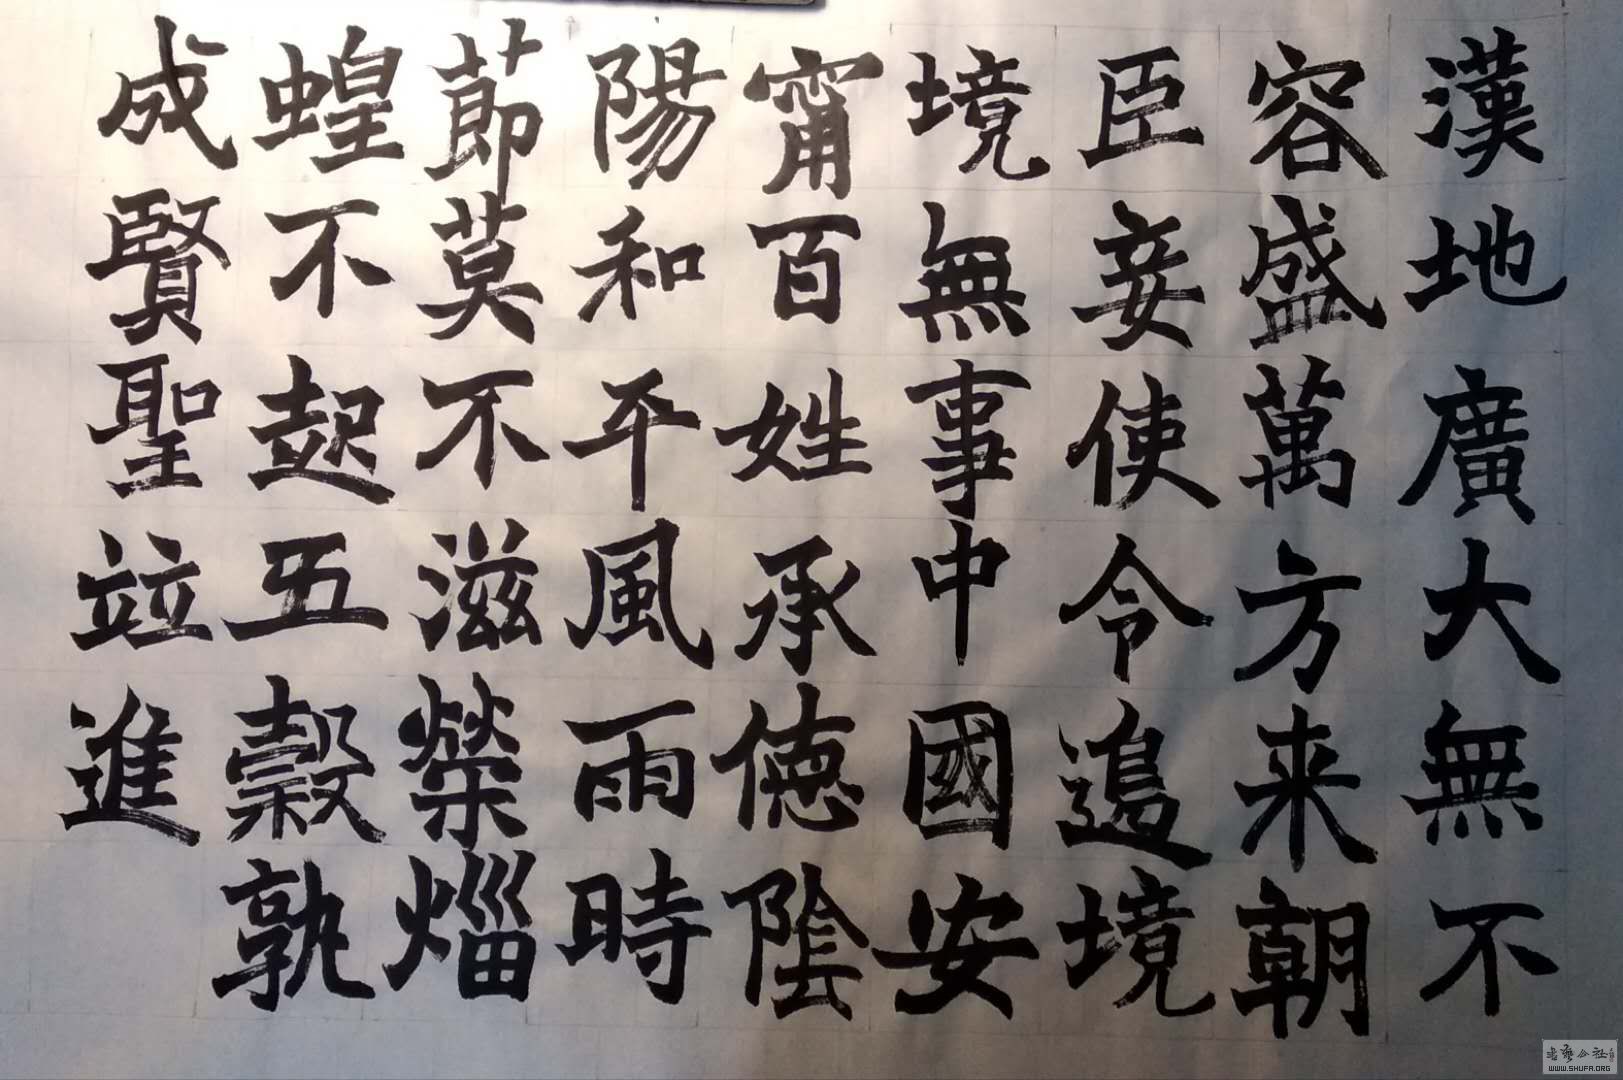 漢地廣大無不
容盛萬方来朝
臣妾使令邉境
境無事中國安
甯百姓承徳陰
陽和平風雨時
莭莫不滋榮
蝗不起五穀孰
成賢聖竝進
书艺公社
WWW.SHUFA.ORG